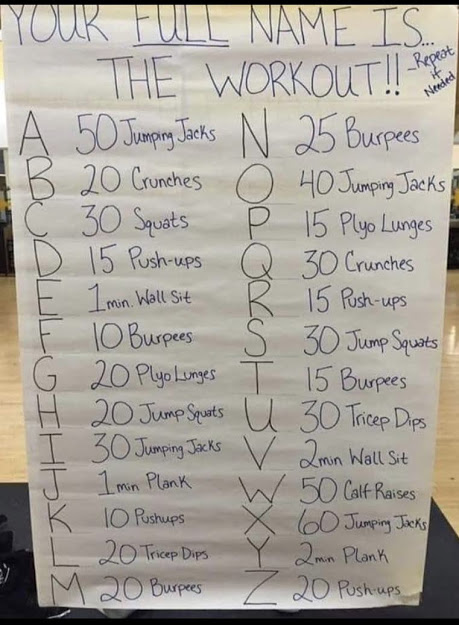 YOUR FULL NAME IS...
THE WORKOUT!!
-Repeat
if
Needed
A 50 Jumping Jacks
B 20 Crunches
C 30 Squats
D 15 Push-ups
E 1 min. Wall Sit
F 10 Burpees
G 20 Plyo Lunges
H 20 Jump Squats
I 30 Jumping Jacks
J 1 min Plank
K 10 Pushups
L 20 Tricep Dips
M 20 Burpees
N 25 Burpees
O 40 Jumping Jacks
P 15 Plyo Lunges
Q 30 Crunches
R 15 Push-ups
S 30 Jump Squats
T 15 Burpees
U 30 Tricep Dips
V 2min Wall Sit
W 50 Calf Raises
X 60 Jumping Jacks
Y 2min Plank
Z 20 Push-ups